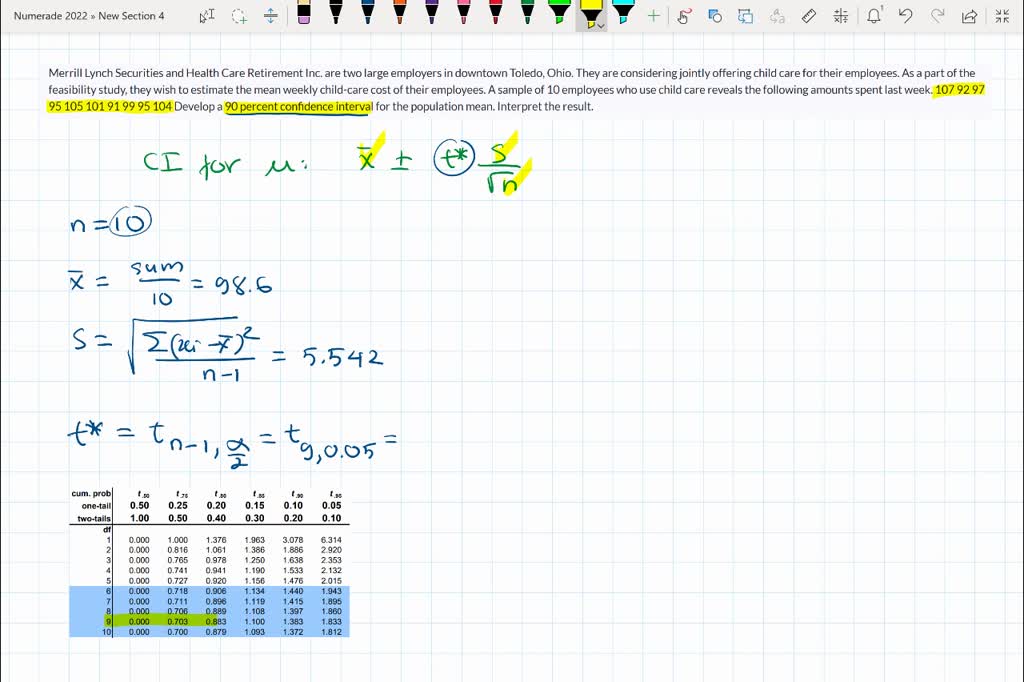 Numerade 2022 » New Section 4
Merrill Lynch Securities and Health Care Retirement Inc. are two large employers in downtown Toledo, Ohio. They are considering jointly offering child care for their employees. As a part of the
feasibility study, they wish to estimate the mean weekly child-care cost of their employees. A sample of 10 employees who use child care reveals the following amounts spent last week. 107 92 97
95 105 101 91 99 95 104 Develop a 90 percent confidence interval for the population mean. Interpret the result.
CI for μ: x̄ ± t* s/√n
n = 10
x̄ = sum/10 = 98.6
S = √(Σ(xi - x̄)²/(n-1)) = 5.542
t* = t n-1, α/2 = t 9, 0.05 =
cum. prob t .50 t .75 t .80 t .85 t .90 t .95
one-tail 0.50 0.25 0.20 0.15 0.10 0.05
two-tails 1.00 0.50 0.40 0.30 0.20 0.10
df
1 0.000 1.000 1.376 1.963 3.078 6.314
2 0.000 0.816 1.061 1.386 1.886 2.920
3 0.000 0.765 0.978 1.250 1.638 2.353
4 0.000 0.741 0.941 1.190 1.533 2.132
5 0.000 0.727 0.920 1.156 1.476 2.015
6 0.000 0.718 0.906 1.134 1.440 1.943
7 0.000 0.711 0.896 1.119 1.415 1.895
8 0.000 0.706 0.889 1.108 1.397 1.860
9 0.000 0.703 0.883 1.100 1.383 1.833
10 0.000 0.700 0.879 1.093 1.372 1.812